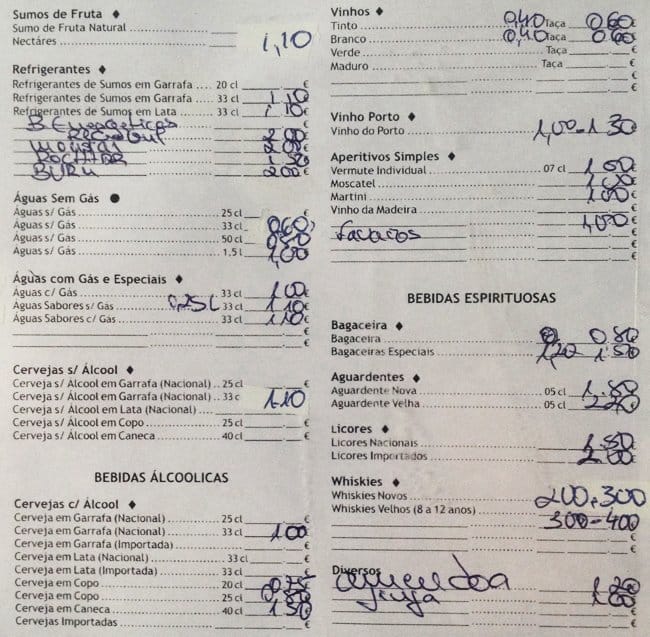 Sumos de Fruta ♦
Sumo de Fruta Natural
Nectáres 1,10
Refrigerantes ♦
Refrigerantes de Sumos em Garrafa .... 20 cl €
Refrigerantes de Sumos em Garrafa .... 33 cl 1 10 €
Refrigerantes de Sumos em Lata .... 33 cl 1 10 €
B Energeticos
Red Bull 2 00 €
2 00 €
1 50 €
BURN 200 €
Águas Sem Gás ●
Águas s/ Gás 25 cl €
Águas s/ Gás 33 cl 0,60
Águas s/ Gás 50 cl 0,80 €
Águas s/ Gás 1,5 l 1,00 €
Águas com Gás e Especiais ♦
Águas c/ Gás 33 cl 1 00 €
Águas Sabores s/ Gás 0,25 L 33 cl 1 10 €
Águas Sabores c/ Gás 33 cl 1 10 €
Cervejas s/ Álcool ♦
Cerveja s/ Álcool em Garrafa (Nacional) .. 25 cl €
Cerveja s/ Álcool em Garrafa (Nacional) .. 33 c 1.10
Cerveja s/ Álcool em Lata (Nacional) €
Cerveja s/ Álcool em Copo 25 cl €
Cerveja s/ Álcool em Caneca 40 cl €
BEBIDAS ÁLCOOLICAS
Cervejas c/ Álcool ♦
Cerveja em Garrafa (Nacional) 25 cl €
Cerveja em Garrafa (Nacional) 33 cl 1 00 €
Cerveja em Garrafa (Importada) €
Cerveja em Lata (Nacional) 33 cl €
Cerveja em Lata (Importada) 33 cl €
Cerveja em Copo 20 cl 0,75 €
Cerveja em Copo 25 cl 0,80 €
Cerveja em Caneca 40 cl 1 50 €
Cervejas Importadas €
Vinhos ♦
Tinto 0,40 Taça 0 60 €
Branco 0,40 Taça 0 60 €
Verde Taça €
Maduro Taça €
Vinho Porto ♦
Vinho do Porto 1,00 - 1 30
Aperitivos Simples ♦
Vermute Individual 07 cl 1 00 €
Moscatel 1 00 €
Martini 1 00 €
Vinho da Madeira €
Favaios 1,00 €
BEBIDAS ESPIRITUOSAS
Bagaceira ♦
Bagaceira 0 80 €
Bagaceiras Especiais 1,20 1 50 €
Aguardentes ♦
Aguardente Nova 05 cl 1.80 €
Aguardente Velha 05 cl €
Licores ♦
Licores Nacionais 1.50 €
Licores Importados 2.00 €
Whiskies ♦
Whiskies Novos 200-300
Whiskies Velhos (8 a 12 anos) 300-400
Diversos
amendoa 1 20 €
ginja €